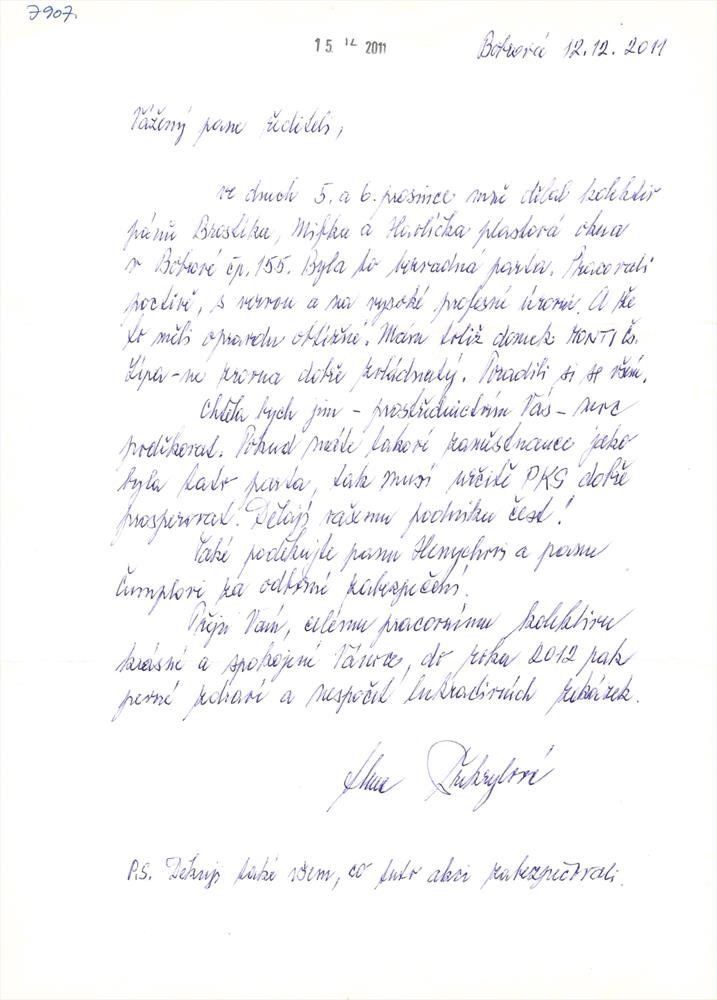 7907.
15. 12. 2011
Bobrová 12.12. 2011
Vážený pane řediteli,
ve dnech 5. a 6. prosince mně dělal kolektiv
pánů Brostíka, Mifka a Havlíčka plastová okna
v Bobrové čp. 155. Byla to bezvadná parta. Pracovali
poctivě, s vervou a na vysoké profesní úrovni. A že
to měli opravdu obtížné. Mám totiž domek MONTI Č.
Lípa - ne zrovna dobře zvládnutý. Poradili si se vším.
Chtěla bych jim - prostřednictvím Vás - moc
poděkovat. Pokud máte takové zaměstnance jako
byla tato parta, tak musí určitě PKS dobře
prosperovat. Dělají vašemu podniku čest!
Také poděkujte panu Henychovi a panu
Čumplovi za odborné zabezpečení.
Přeji Vám, celému pracovnímu kolektivu
krásné a spokojené Vánoce, do roku 2012 pak
pevné zdraví a nespočet lukrativních zakázek.
Přikrylová
P.S. Děkuji také všem, co tuto akci zabezpečovali.